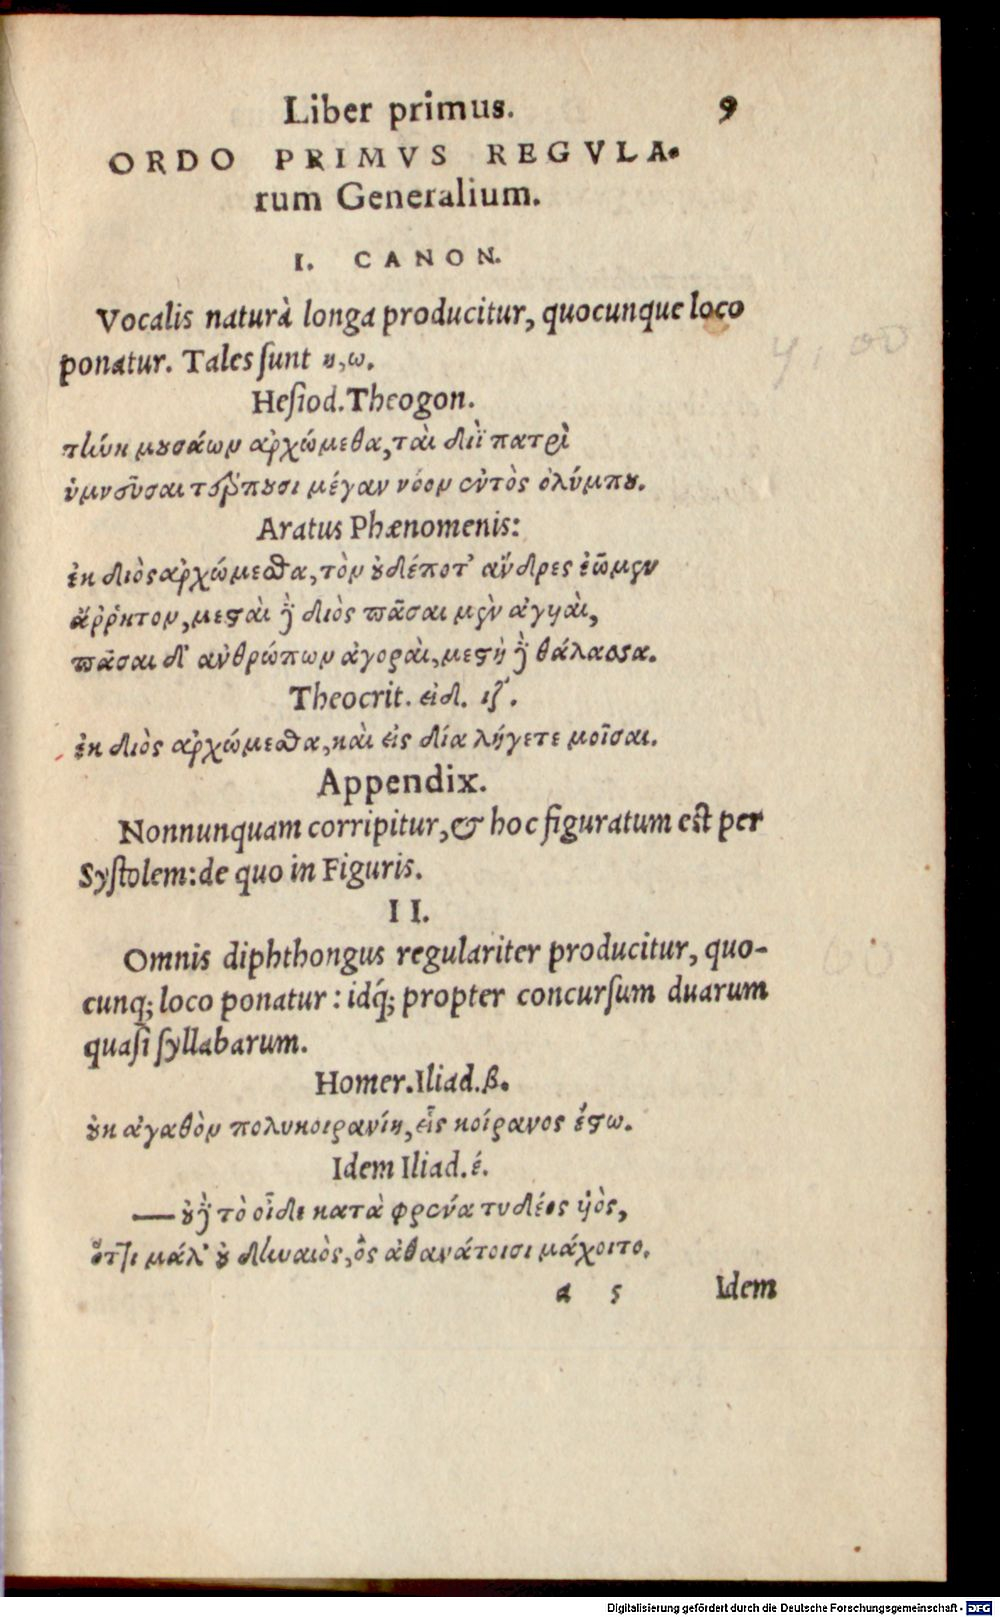 Liber primus. 9
ORDO PRIMVS REGVLA.
rum Generalium.
I. CANON.
Vocalis naturà longa producitur, quocunque loco
ponatur. Tales ſunt η,ω.
Heſiod.Theogon.
τύνη μουσάων ἀρχώμεθα, ταὶ διῒ πατρὶ
ὑμνοῦσαι τέρπουσι μέγαν νόον ἐντὸς ὀλύμπου.
Aratus Phænomenis:
ἐκ διὸς ἀρχώμεσθα, τὸν οὐδέποτ' ἄνδρες ἐῶμεν
ἄῤῥητον, μεσταὶ δὲ διὸς πᾶσαι μὲν ἀγυιαὶ,
πᾶσαι δ' ἀνθρώπων ἀγοραὶ, μεστὴ δὲ θάλασσα.
Theocrit. εἰδ. ιζ.
ἐκ διὸς ἀρχώμεσθα, καὶ εἰς δία λήγετε μοῖσαι.
Appendix.
Nonnunquam corripitur,& hoc figuratum eſt per
Syſtolem:de quo in Figuris.
II.
Omnis diphthongus regulariter producitur, quo-
cunq; loco ponatur: idq́; propter concurſum duarum
quaſi ſyllabarum.
Homer.Iliad.β.
οὐκ ἀγαθὸν πολυκοιρανίη, εἷς κοίρανος ἔστω.
Idem Iliad.έ.
— οὐδὲ τὸ οἶδε κατὰ φρένα τυδέος υἱὸς,
ὅττι μάλ' οὐ δηναιὸς, ὃς ἀθανάτοισι μάχοιτο.
a 5 Idem
Digitalisierung gefördert durch die Deutsche Forschungsgemeinschaft - DFG